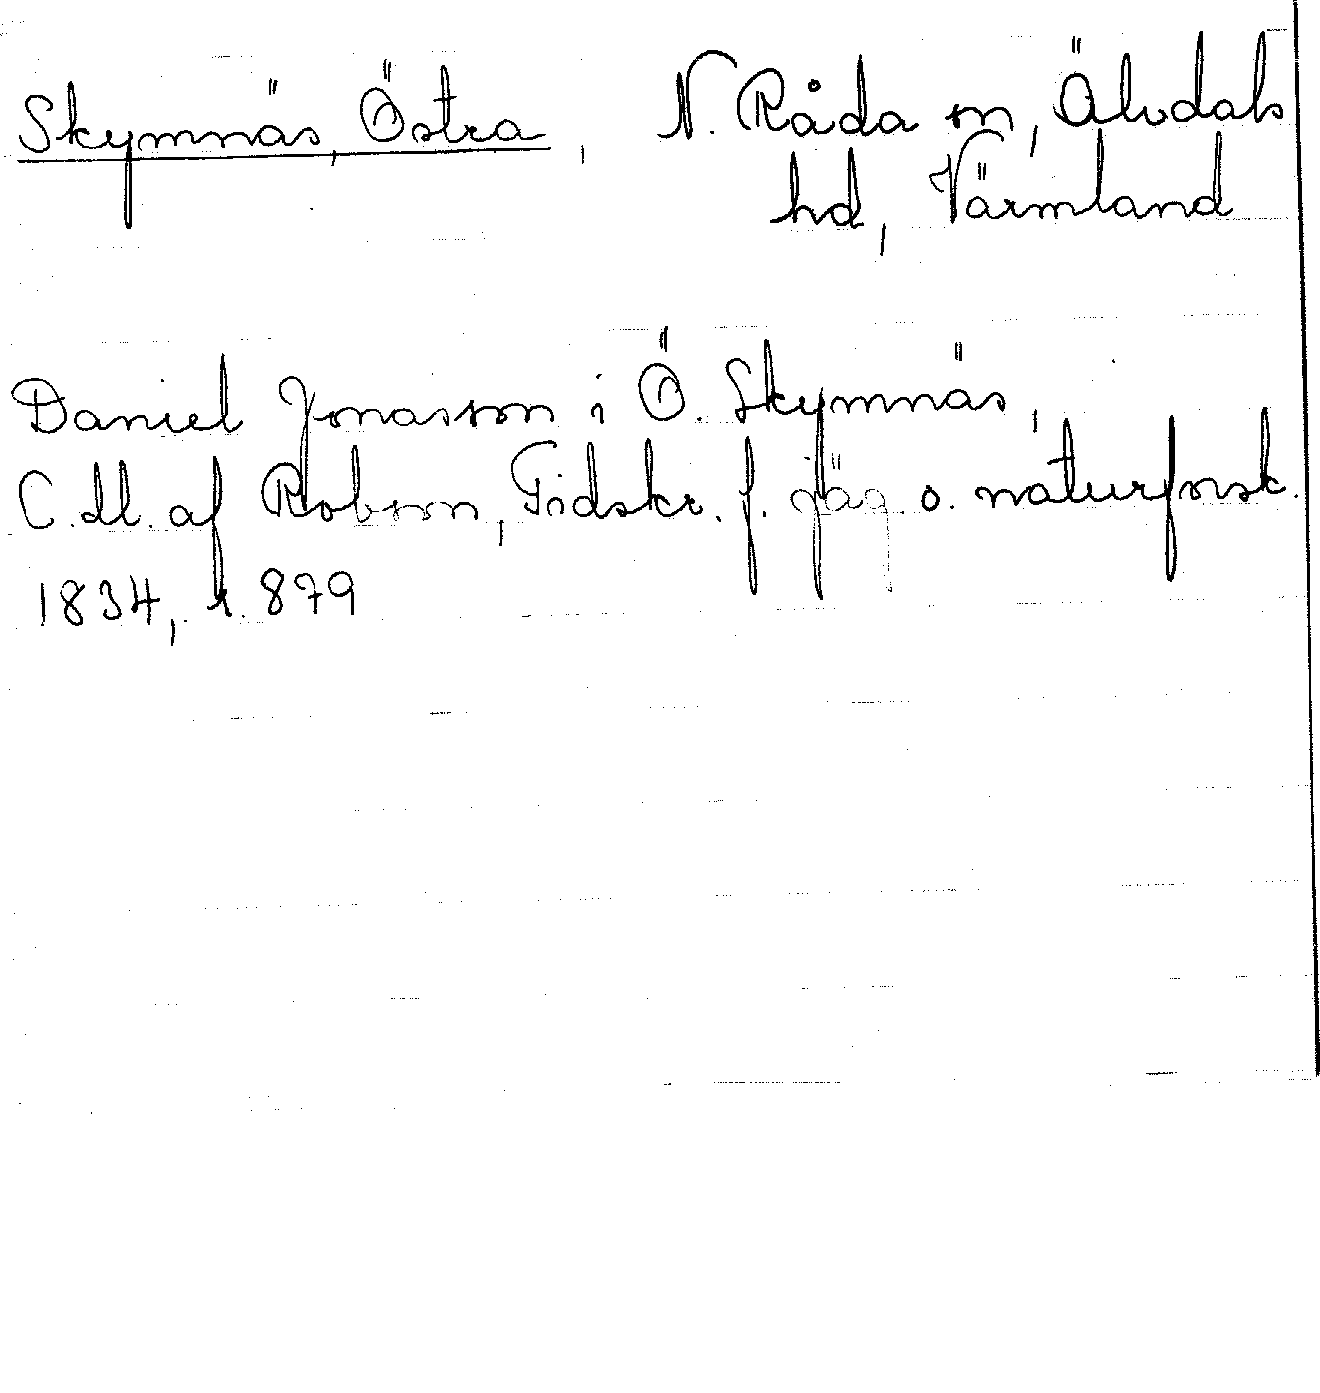 Skymnäs, Östra, N. Råda sn, Älvdals
hd, Värmland
Daniel Jonasson i Ö. Skymnäs,
C. U. af Robson, Tidskr. f. jäg o. naturforsk.
1834, s. 879